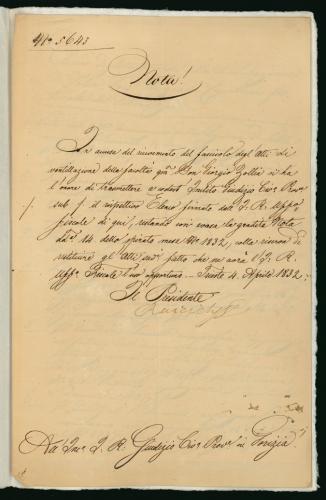 N.º 5643
Nota!
In senso del ricevimento del fascicolo degli Atti di
ventillazione della facoltà q.m Don Giorgio Zottia si ha
l'onore di trasmettere a codesto Inclito Giudizio Civ.º Prov.e
sub /. il rispettivo Elenco firmato dall' I. R. Uff.º
fiscale di qui, restando con ciò la gradita Nota
dd.º 14 dello spirato mese N.º 1832, colla riserva di
restituire gli Atti sud.i fatto che ne avrà l'I. R.
Uff.º Fiscale l'uso opportuno. Trieste 4 Aprile 1832.
Il Presidente
All' Inc.º I. R. Giudizio Civ.º Prov.e in Gorizia